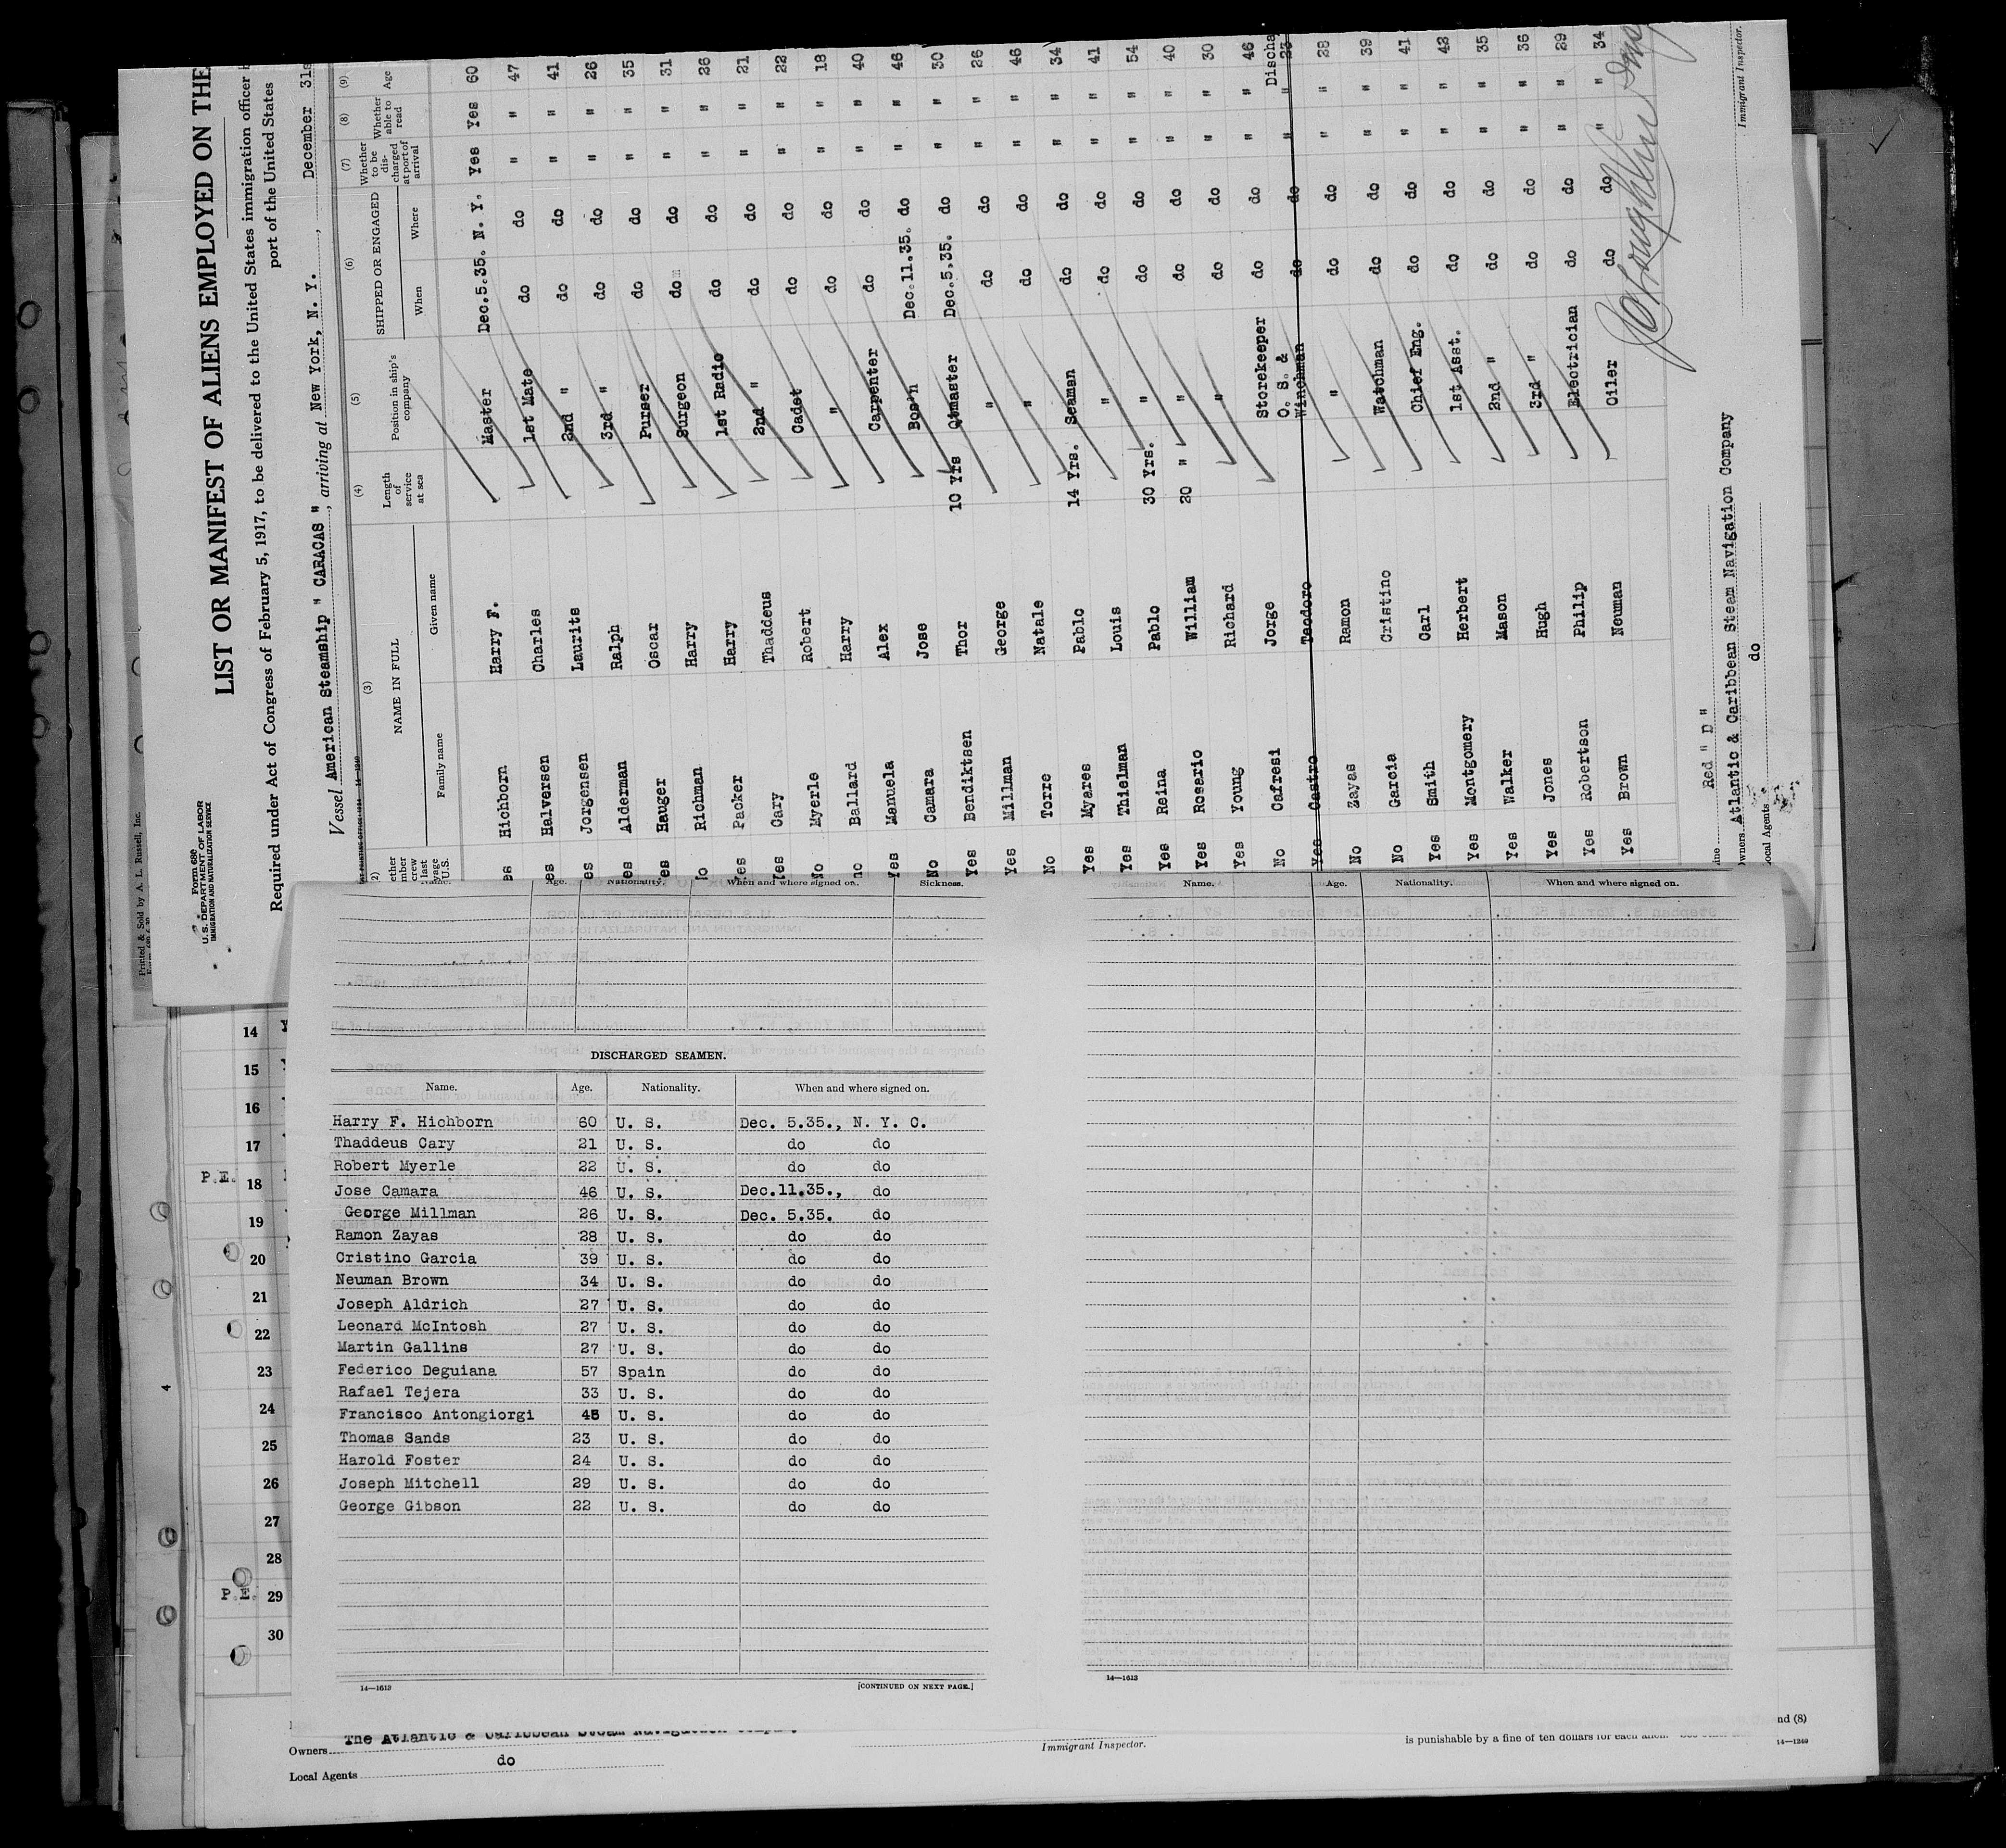 Printed & Sold by A. L. Russell, Inc.
Form 680
U. S. DEPARTMENT OF LABOR
IMMIGRATION AND NATURALIZATION SERVICE
LIST OR MANIFEST OF ALIENS EMPLOYED ON THE
Required under Act of Congress of February 5, 1917, to be delivered to the United States immigration officer
port of the United States
Vessel American Steamship " CARACAS ", arriving at New York, N. Y., December 31s
(3) (4) (5) (6) (7) (8) (9)
NAME IN FULL Length of service at sea Position in ship's company SHIPPED OR ENGAGED Whether to be discharged at port of arrival Whether able to read Age
Family name Given name When Where
Hichborn Harry F. Master Dec.5.35. N. Y. Yes Yes 60
Halversen Charles 1st Mate do do " " 47
Jorgensen Laurits 2nd " do do " " 41
Alderman Ralph 3rd " do do " " 26
Hauger Oscar Purser do do " " 35
Richman Harry Surgeon do do " " 31
Packer Harry 1st Radio do do " " 26
Yes Cary Thaddeus 2nd " do do " " 21
No Myerle Robert Cadet do do " " 22
no Ballard Harry " do do " " 18
Yes Manuela Alex Carpenter do do " " 40
No Camara Jose Bos'n Dec.11.35. do " " 46
Yes Bendiktsen Thor 10 Yrs Qtmaster Dec.5.35. do " " 30
Yes Millman George " do do " " 26
No Torre Natale " do do " " 46
Yes Myares Pablo 14 Yrs. Seaman do do " " 34
Yes Thielman Louis " do do " " 41
Yes Reina Pablo 30 Yrs. " do do " " 54
Yes Rosario William 20 " " do do " " 40
Yes Young Richard " do do " " 30
No Cafresi Jorge Storekeeper do do " " 46
Yes Castro Teodoro O. S. & Winchman do do " " 23 Discha
No Zayas Ramon " do do " " 28
No Garcia Cristino Watchman do do " " 39
Yes Smith Carl Chief Eng. do do " " 41
Yes Montgomery Herbert 1st Asst. do do " " 42
Yes Walker Mason 2nd " do do " " 35
Yes Jones Hugh 3rd " do do " " 36
Yes Robertson Philip Electrician do do " " 29
Yes Brown Neuman Oiler do do " " 34
Immigrant Inspector.
Red " D "
Owners Atlantic & Caribbean Steam Navigation Company
Local Agents do
Age. Nationality. When and where signed on. Sickness.
Name. Age. Nationality. When and where signed on.
DISCHARGED SEAMEN.
Name. Age. Nationality. When and where signed on.
Harry F. Hichborn 60 U. S. Dec. 5.35., N. Y. C.
Thaddeus Cary 21 U. S. do do
Robert Myerle 22 U. S. do do
Jose Camara 46 U. S. Dec.11.35., do
George Millman 26 U. S. Dec. 5.35. do
Ramon Zayas 28 U. S. do do
Cristino Garcia 39 U. S. do do
Neuman Brown 34 U. S. do do
Joseph Aldrich 27 U. S. do do
Leonard McIntosh 27 U. S. do do
Martin Gallins 27 U. S. do do
Federico Deguiana 57 Spain do do
Rafael Tejera 33 U. S. do do
Francisco Antongiorgi 45 U. S. do do
Thomas Sands 23 U. S. do do
Harold Foster 24 U. S. do do
Joseph Mitchell 29 U. S. do do
George Gibson 22 U. S. do do
14—1613 [CONTINUED ON NEXT PAGE.]
14—1613
14
15
16
17
P.E. 18
19
20
21
22
23
24
25
26
27
28
P.E. 29
30
4
Owners The Atlantic & Caribbean Steam Navigation Company
Local Agents do
Immigrant Inspector.
nd (8)
is punishable by a fine of ten dollars for each alien.
14—1240